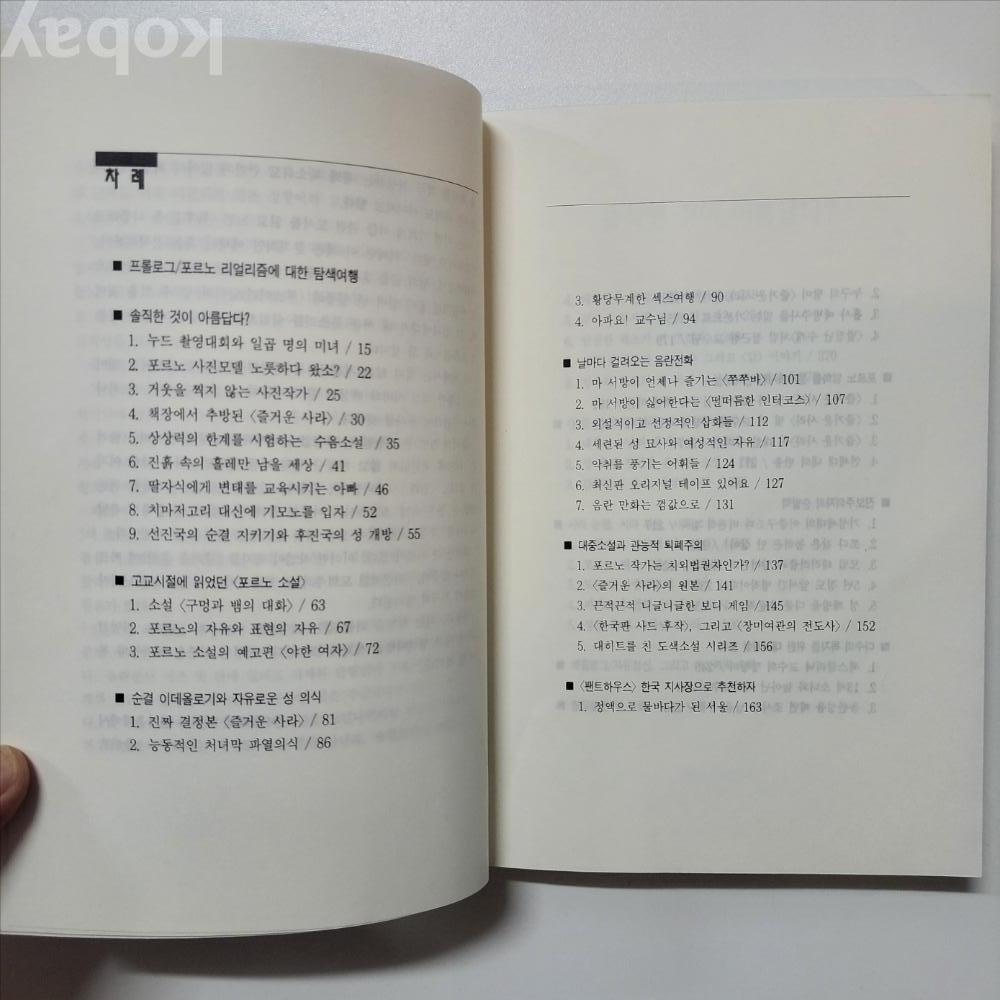 kobay
차 례
■ 프롤로그/포르노 리얼리즘에 대한 탐색여행
■ 솔직한 것이 아름답다?
1. 누드 촬영대회와 일곱 명의 미녀 / 15
2. 포르노 사진모델 노릇하다 왔소? / 22
3. 거웃을 찍지 않는 사진작가 / 25
4. 책장에서 추방된 〈즐거운 사라〉 / 30
5. 상상력의 한계를 시험하는 수음소설 / 35
6. 진흙 속의 흘레만 남을 세상 / 41
7. 딸자식에게 변태를 교육시키는 아빠 / 46
8. 치마저고리 대신에 기모노를 입자 / 52
9. 선진국의 순결 지키기와 후진국의 성 개방 / 55
■ 고교시절에 읽었던 〈포르노 소설〉
1. 소설 〈구멍과 뱀의 대화〉 / 63
2. 포르노의 자유와 표현의 자유 / 67
3. 포르노 소설의 예고편 〈야한 여자〉 / 72
■ 순결 이데올로기와 자유로운 성 의식
1. 진짜 결정본 〈즐거운 사라〉 / 81
2. 능동적인 처녀막 파열의식 / 86
3. 황당무계한 섹스여행 / 90
4. 아파요! 교수님 / 94
■ 날마다 걸려오는 음란전화
1. 마 서방이 언제나 즐기는 〈쭈쭈바〉 / 101
2. 마 서방이 싫어한다는 〈떨떠름한 인터코스〉 / 107
3. 외설적이고 선정적인 삽화들 / 112
4. 세련된 성 묘사와 여성적인 자유 / 117
5. 악취를 풍기는 어휘들 / 124
6. 최신판 오리지널 테이프 있어요 / 127
7. 음란 만화는 껌값으로 / 131
■ 대중소설과 관능적 퇴폐주의
1. 포르노 작가는 치외법권자인가? / 137
2. 〈즐거운 사라〉의 원본 / 141
3. 끈적끈적 니글니글한 보디 게임 / 145
4. 〈한국판 사드 후작〉, 그리고 〈장미여관의 전도사〉 / 152
5. 대히트를 친 도색소설 시리즈 / 156
■ 〈팬트하우스〉 한국 지사장으로 추천하자
1. 정액으로 물바다가 된 서울 / 163